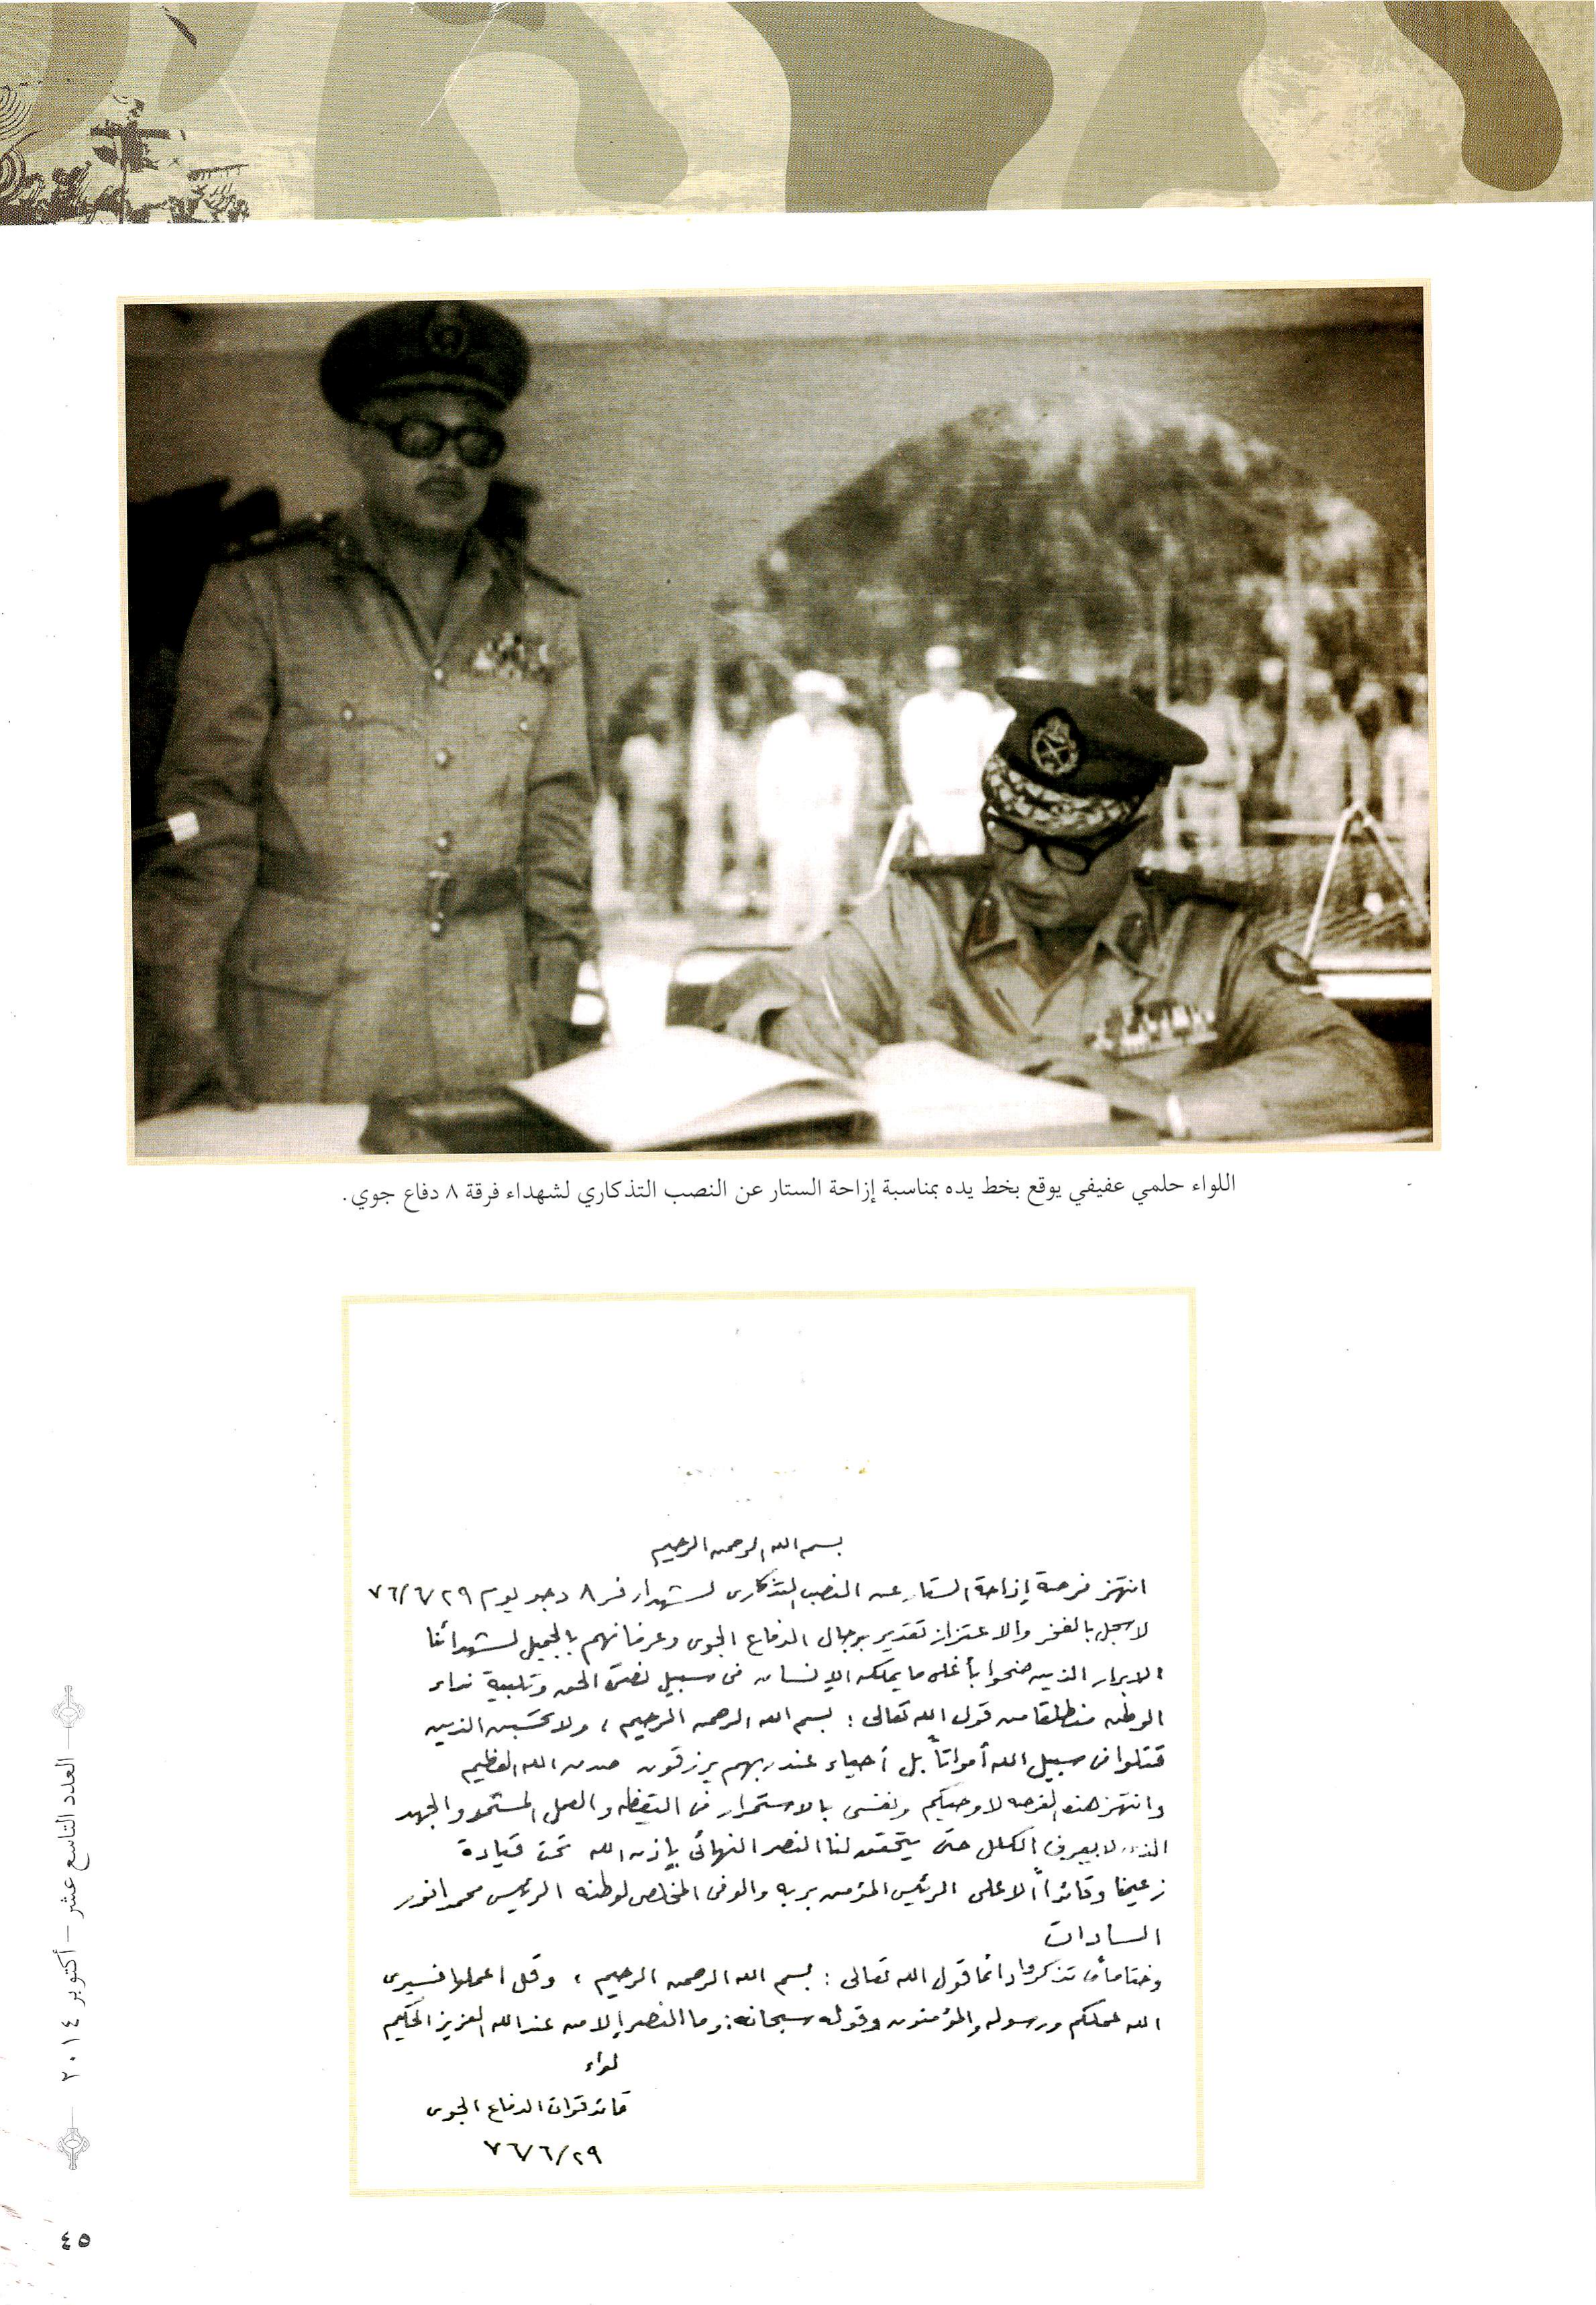 اللواء حلمي عفيفي يوقع بخط يده بمناسبة إزاحة الستار عن النصب التذكاري لشهداء فرقة ٨ دفاع جوي.
بسم الله الرحمن الرحيم
انتهز فرصة إزاحة الستار عن النصب التذكارى لشهداء فر ٨ دجو يوم ٧٦/٦/٢٩
لاسجل بالفخر والاعتزاز تقدير رجال الدفاع الجوى وعرفانهم بالجميل لشهدائنا
الابرار الذين ضحوا بأغلى ما يملكه الإنسان فى سبيل نصرة الحق وتلبية نداء
الوطن منطلقا من قول الله تعالى : بسم الله الرحمن الرحيم ، ولا تحسبن الذين
قتلوا فى سبيل الله أمواتاً بل أحياء عند ربهم يرزقون صدق الله العظيم
وانتهز هذه الفرصه لاوصيكم ونفسى بالاستمرار فى اليقظه والعمل المستمر والجهد
الذى لا يعرف الكلل حتى يتحقق لنا النصر النهائى بإذن الله تحت قيادة
زعيمنا وقائدنا الاعلى الرئيس المؤمن بربه والوفى المخلص لوطنه الرئيس محمد انور
السادات
وختاما تذكروا دائما قول الله تعالى : بسم الله الرحمن الرحيم ، وقل اعملوا فسيرى
الله عملكم ورسوله والمؤمنون وقوله سبحانه : وما النصر إلا من عند الله العزيز الحكيم
لواء
قائد قوات الدفاع الجوى
٧٦/٦/٢٩
العدد التاسع عشر – أكتوبر ٢٠١٤
٤٥